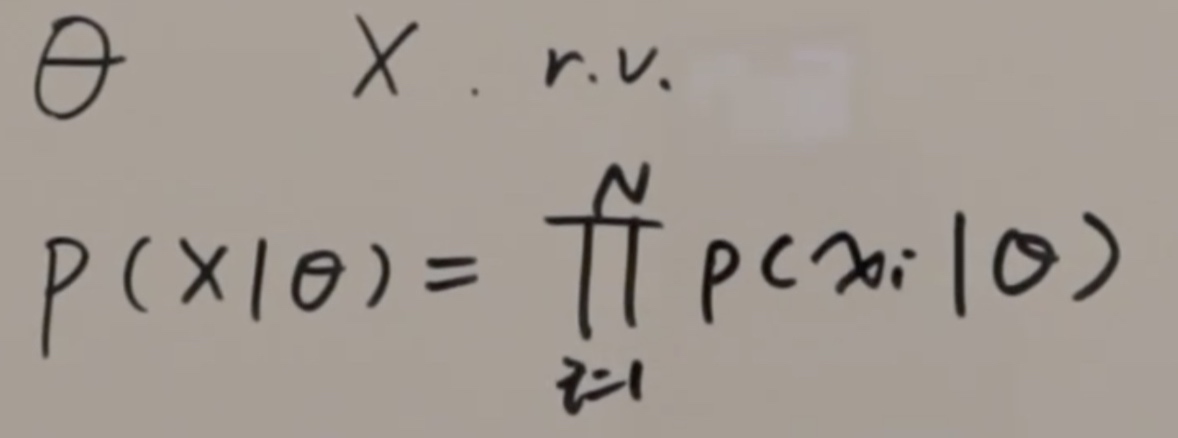 θ X . r.v.
P(X|θ) = ∏_{i=1}^{N} p(x_i|θ)